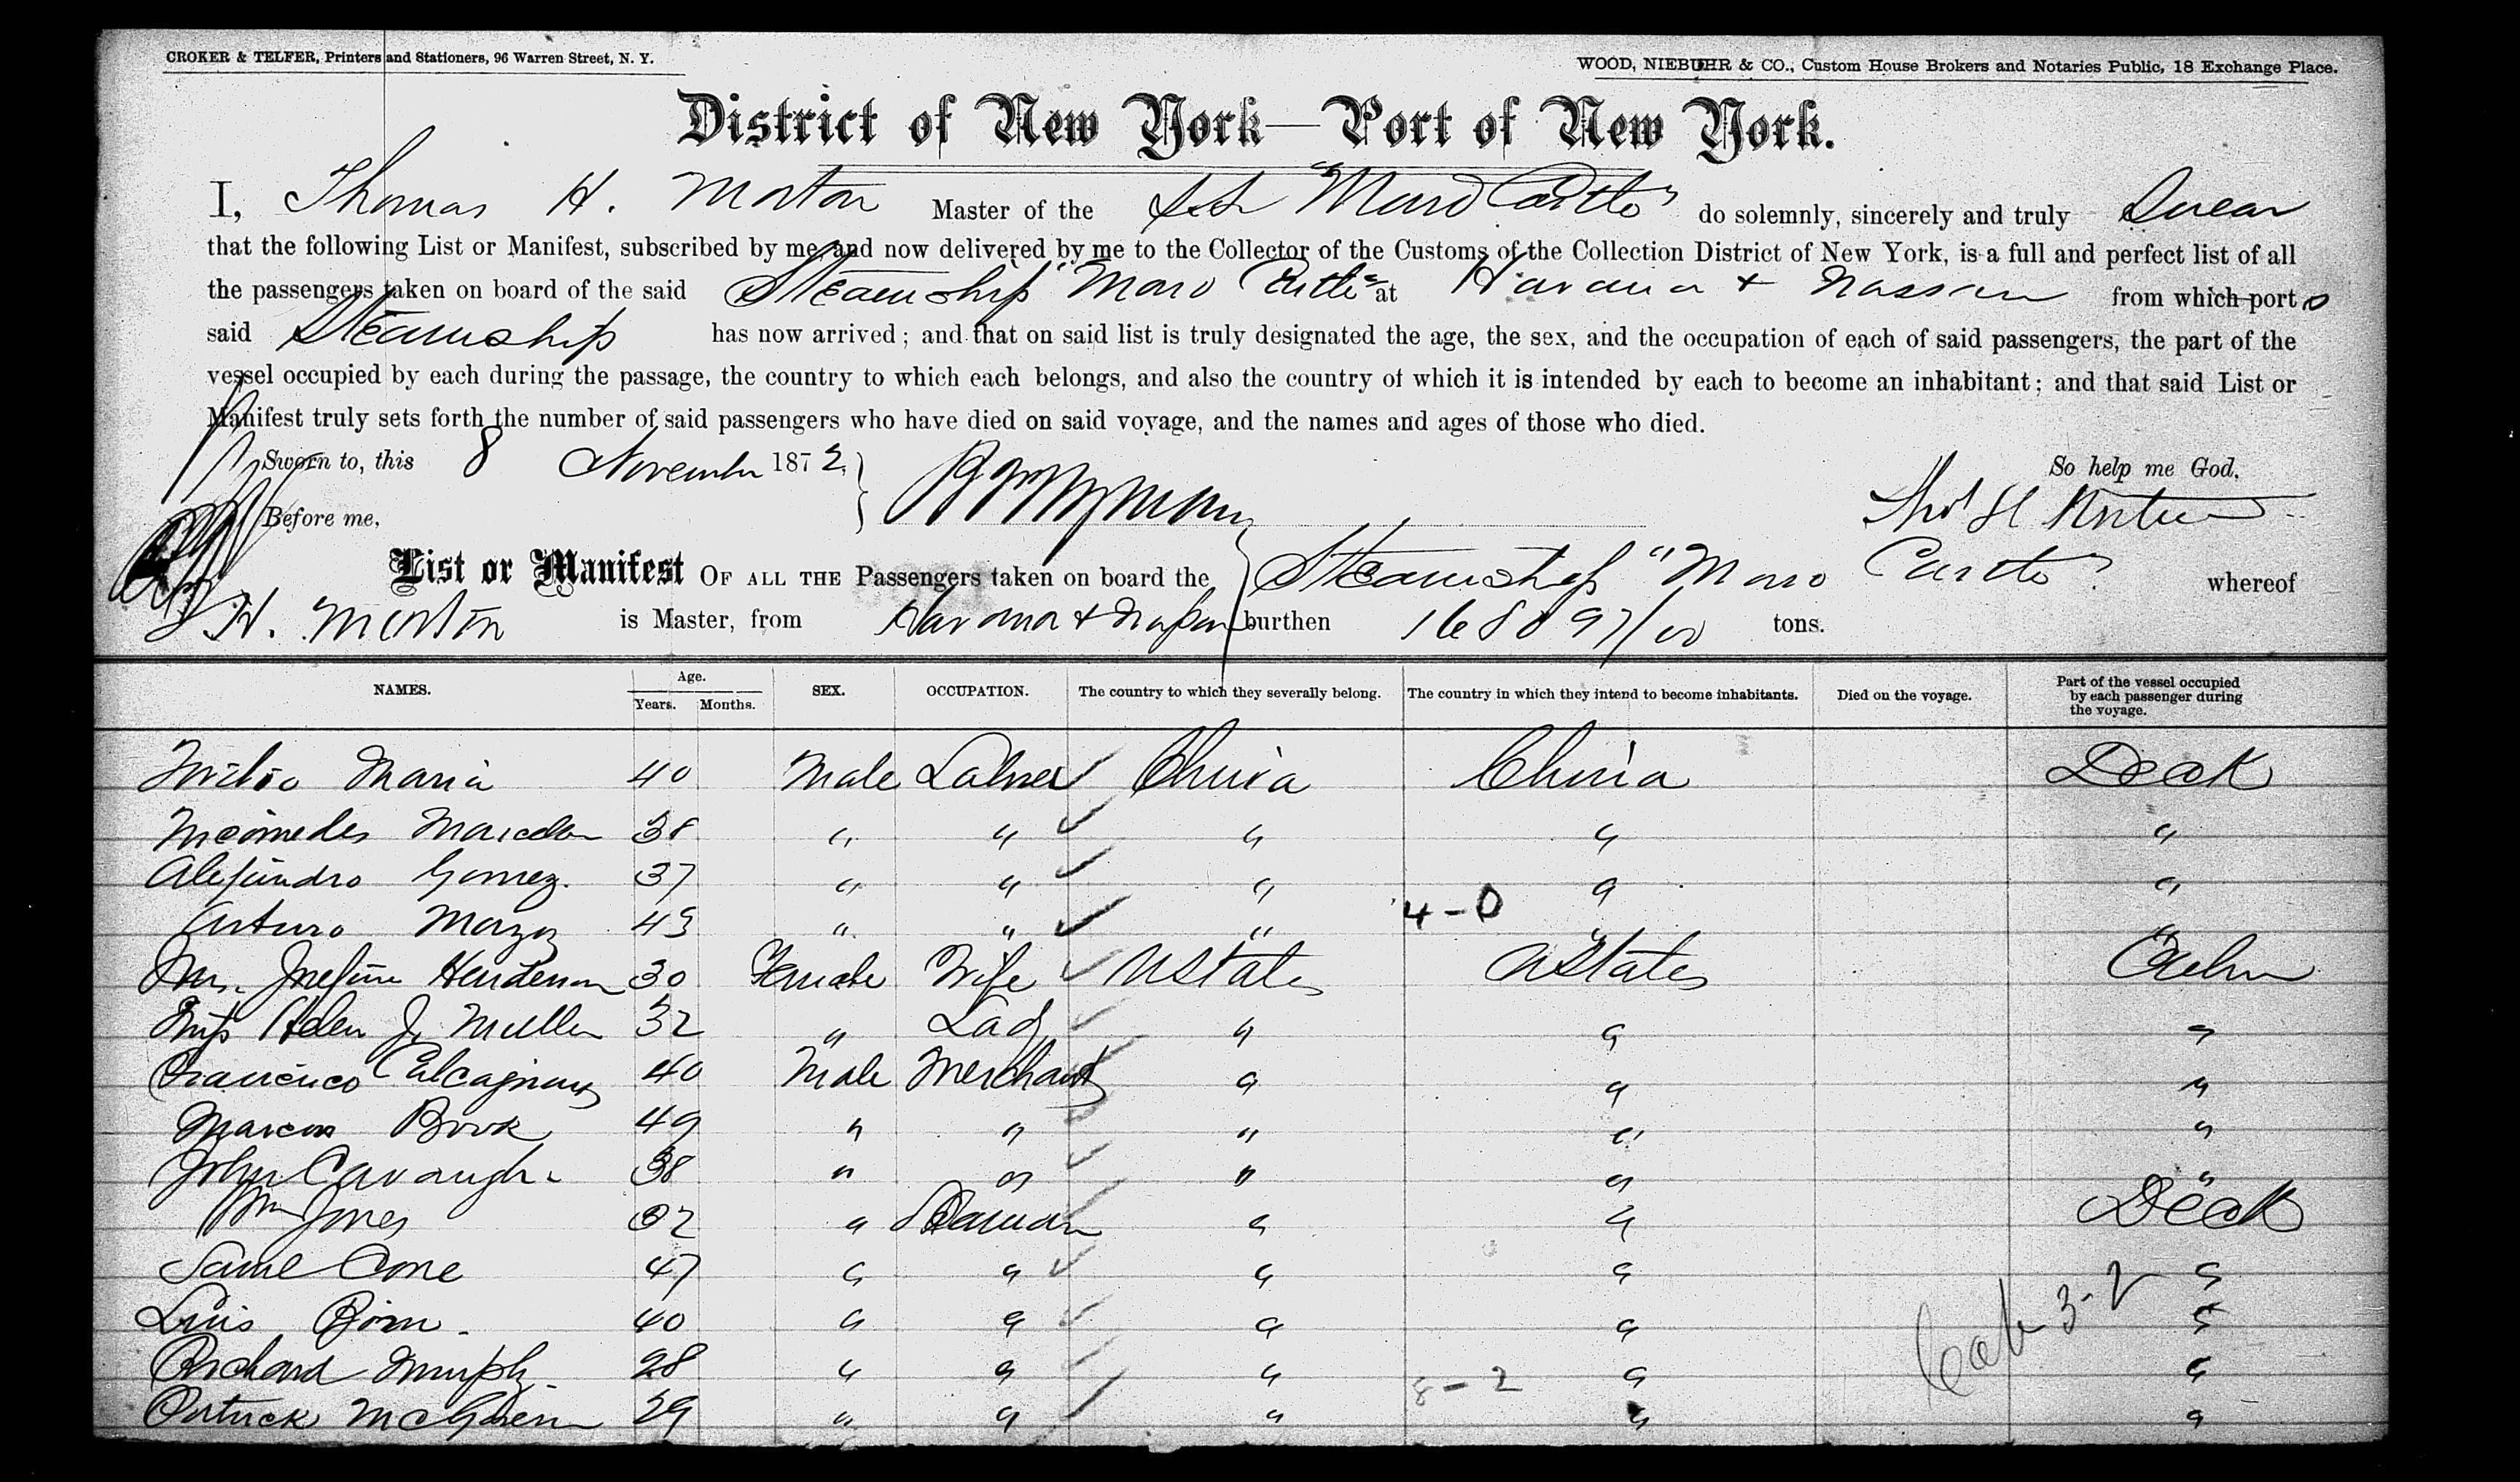 CROKER & TELFER, Printers and Stationers, 96 Warren Street, N. Y.
WOOD, NIEBUHR & CO., Custom House Brokers and Notaries Public, 18 Exchange Place.
District of New York—Port of New York.
I, Thomas H. Morton Master of the SS "Moro Castle" do solemnly, sincerely and truly Swear
that the following List or Manifest, subscribed by me, and now delivered by me to the Collector of the Customs of the Collection District of New York, is a full and perfect list of all
the passengers taken on board of the said Steamship "Moro Castle" at Havana + Nassau from which port s
said Steamship has now arrived; and that on said list is truly designated the age, the sex, and the occupation of each of said passengers, the part of the
vessel occupied by each during the passage, the country to which each belongs, and also the country of which it is intended by each to become an inhabitant; and that said List or
Manifest truly sets forth the number of said passengers who have died on said voyage, and the names and ages of those who died.
Sworn to, this 8 November 1872. So help me God.
Before me, Thos H Morton
List or Manifest OF ALL THE Passengers taken on board the Steamship "Moro Castle" whereof
T. H. Morton is Master, from Havana + Nassau burthen 1680 97/00 tons.
NAMES. Age. Years. Months. SEX. OCCUPATION. The country to which they severally belong. The country in which they intend to become inhabitants. Died on the voyage. Part of the vessel occupied by each passenger during the voyage.
Maria 40 Male Labrer China China Deck
38 " " " " "
Alejandro Gomez. 37 " " " " "
4-0
Arturo 43 " " " " "
Mrs. Josefine Henderson 30 Female Wife UStates UStates Cabin
Miss Helen J. Mullen 32 " Lady " " "
Francisco 40 Male Merchant " " "
Marcos Book 49 " " " " "
John Cavaugh. 38 " " " " "
Wm Jones 32 " Seaman " " Deck
Saml Cone 47 " " " " "
Luis 40 " " " " "
Cab 3-2
Richard Murphy 28 " " " " "
8-2
Patrick 29 " " " " "